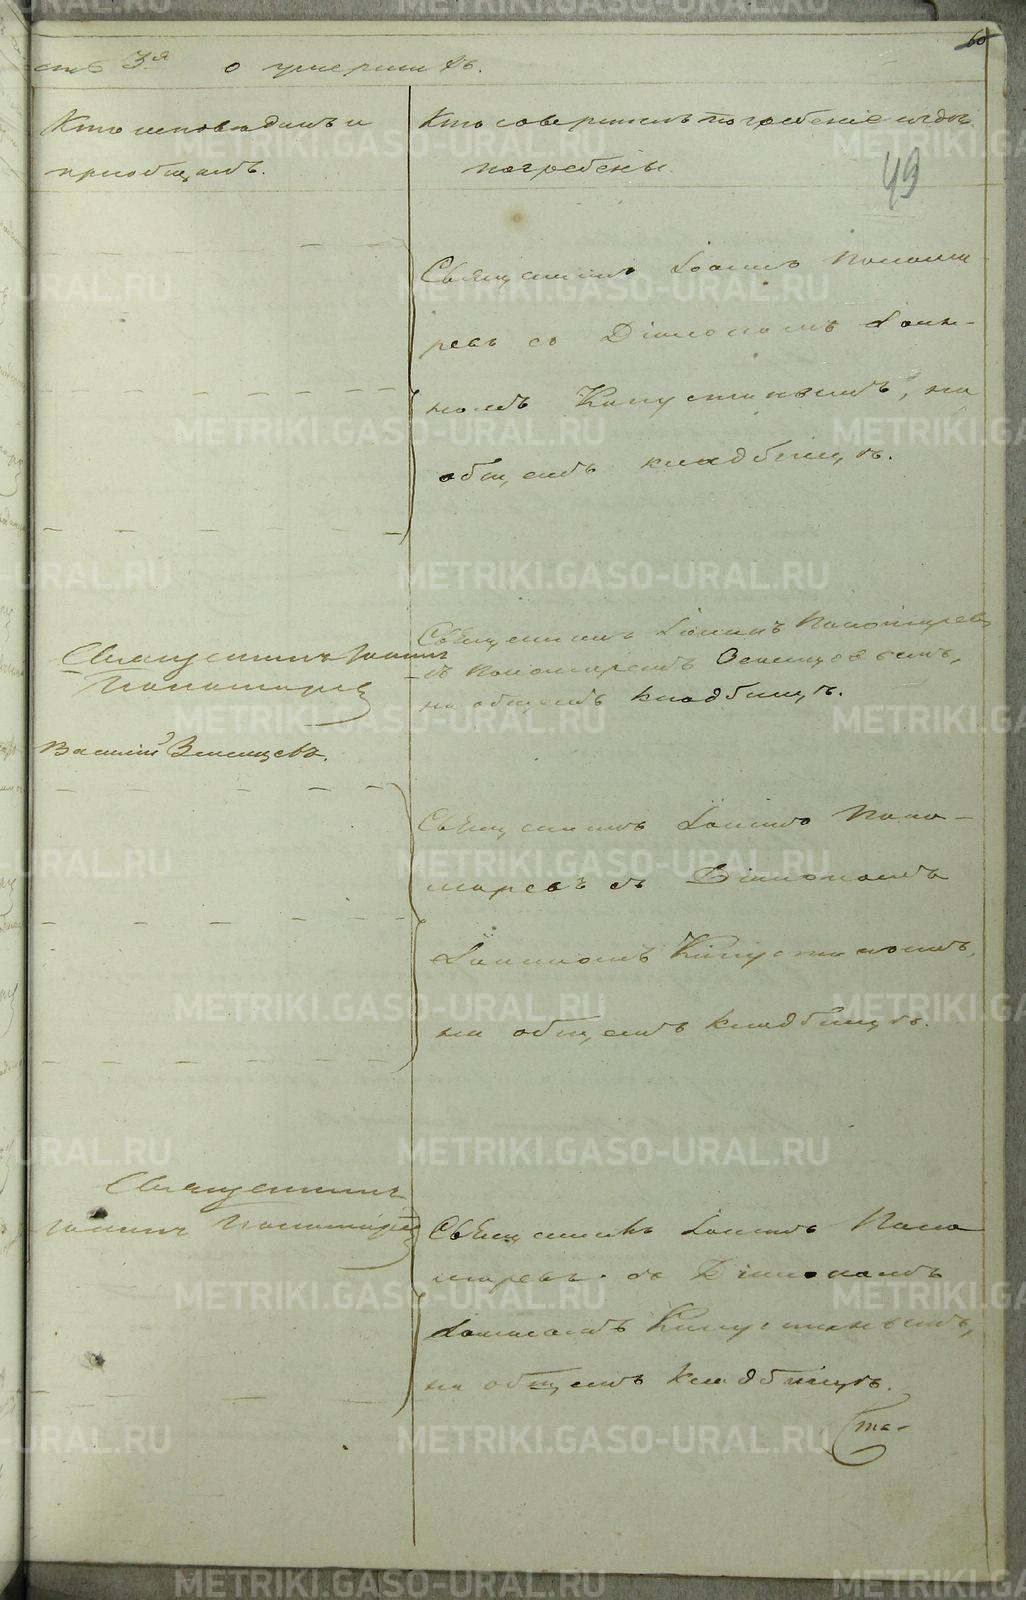 60
сть 3я о умершихъ.
Кто исповѣдалъ и
приобщалъ.
Кто совершалъ погребеніе и гдѣ
погребены.
49
Священникъ Іоаннъ Понома-
ревъ съ Діакономъ Іоан-
номъ Капустинымъ, на
общемъ кладбищѣ.
Священникъ Іоаннъ
Пономаревъ
Священникъ Іоаннъ Пономаревъ
съ Пономаремъ Земенцовымъ,
на общемъ кладбищѣ.
Василій
Священникъ Іоаннъ Поно-
маревъ съ Діакономъ
Іоанномъ Капустинымъ,
на общемъ кладбищѣ.
Священникъ
Іоаннъ Пономаревъ
Священникъ Іоаннъ Поно
маревъ съ Діакономъ
Іоанномъ Капустинымъ,
на общемъ кладбищѣ.
Ста-
METRIKI.GASO-URAL.RU